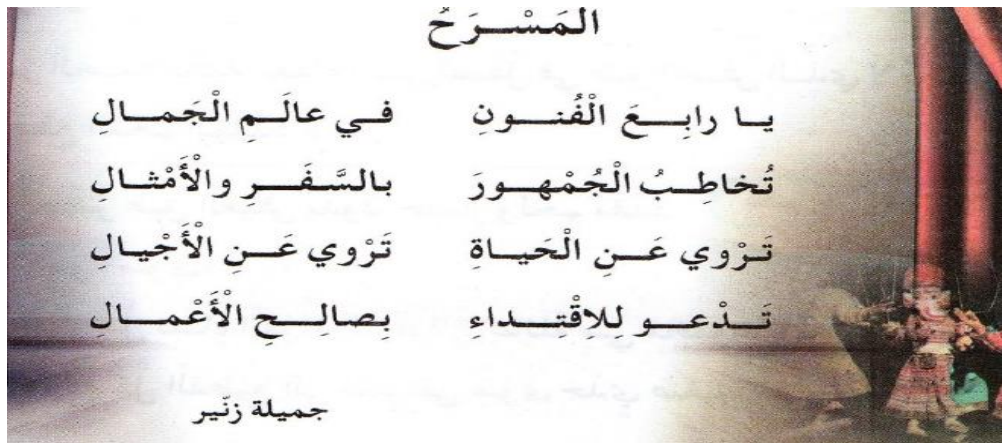 الْمَسْـرَحُ
يـا رابِـعَ الْفُنـونِ في عالَـمِ الْجَمـالِ
تُخاطِـبُ الْجُمْهـورَ بالسَّفَـرِ والْأَمْثـالِ
تَـرْوي عَـنِ الْحَيـاةِ تَرْوي عَـنِ الْأَجْيـالِ
تَـدْعـو لِلِاقْتِـداءِ بِصالِـحِ الْأَعْمـالِ
جميلة زنّير